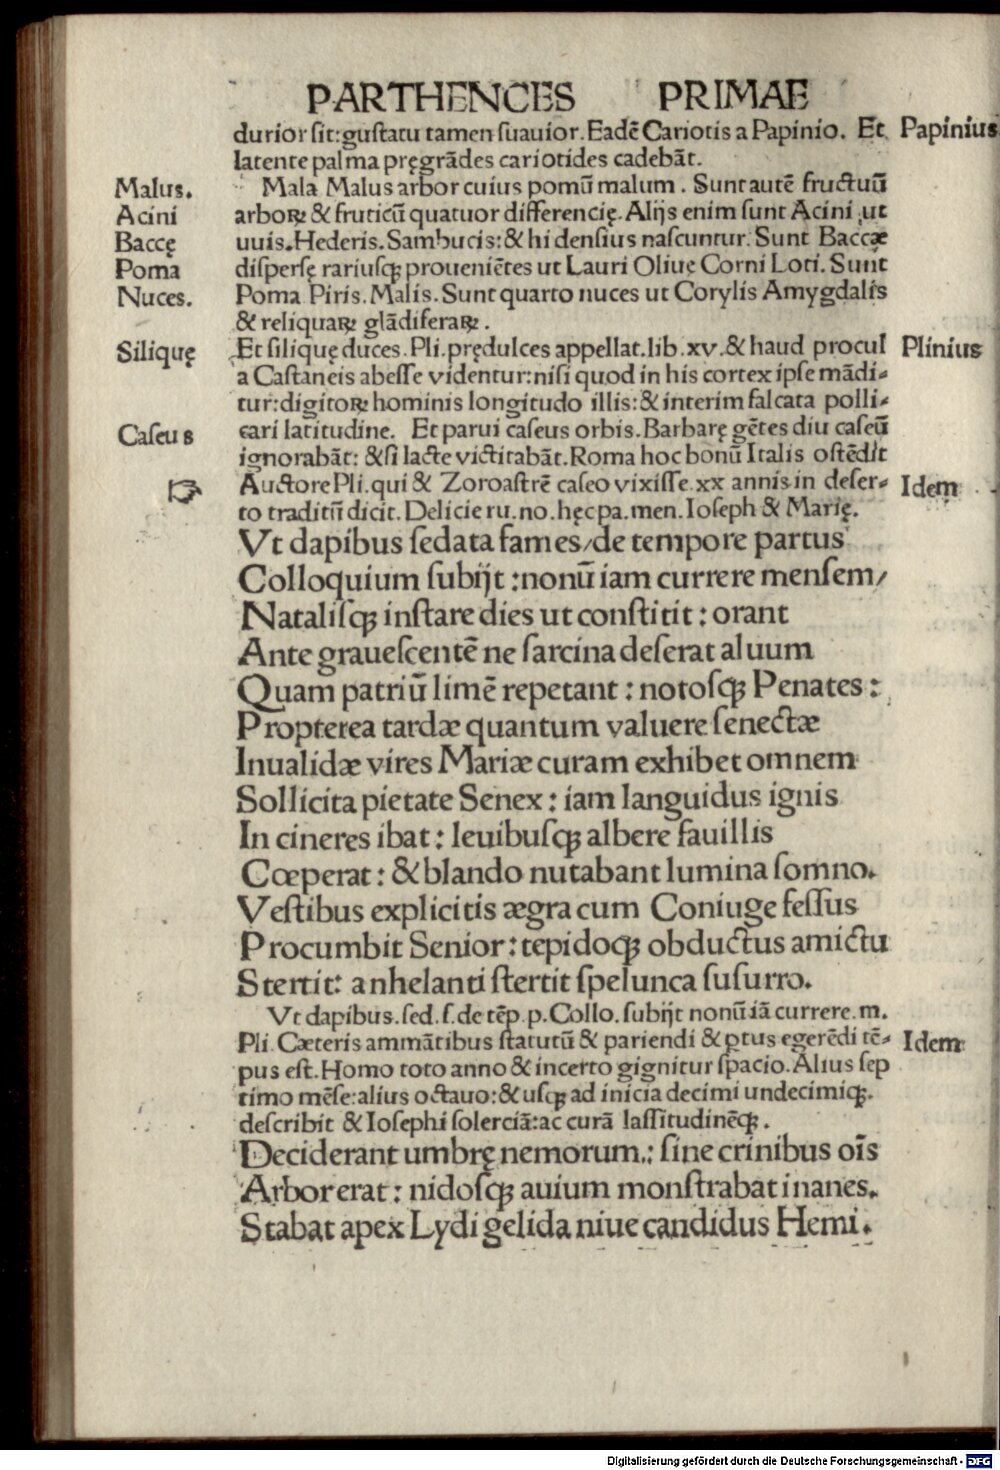 PARTHENCES PRIMAE
durior sit:gustatu tamen suauior. Eadē Cariotis a Papinio. Et Papinius
latente palma pręgrādes cariotides cadebāt.
Malus. Mala Malus arbor cuius pomū malum. Sunt autē fructuū
Acini arboꝝ & fruticū quatuor differencię. Alijs enim sunt Acini ut
Baccę uuis. Hederis. Sambucis: & hi densius nascuntur. Sunt Baccæ
Poma dispersę rariusqꝫ proueniētes ut Lauri Oliuę Corni Loti. Sunt
Nuces. Poma Piris. Malis. Sunt quarto nuces ut Corylis Amygdalis
& reliquaꝝ glādiferaꝝ.
Siliquę Et siliquę duces. Pli. prędulces appellat. lib. xv. & haud procul Plinius
a Castaneis abesse videntur: nisi quod in his cortex ipse mādi⸗
tur: digitoꝝ hominis longitudo illis: & interim falcata polli⸗
Caseus cari latitudine. Et parui caseus orbis. Barbarę gētes diu caseū
ignorabāt: & si lacte victitabāt. Roma hoc bonū Italis ostēdit
☞ Auctore Pli. qui & Zoroastrē caseo vixisse .xx annis in deser⸗ Idem
to traditū dicit. Delicie ru. no. hęc pa. men. Ioseph & Marię.
Vt dapibus sedata fames/de tempore partus
Colloquium subijt: nonū iam currere mensem/
Natalisqꝫ instare dies ut constitit: orant
Ante grauescentē ne sarcina deserat aluum
Quam patriū limē repetant: notosqꝫ Penates:
Propterea tardæ quantum valuere senectæ
Inualidæ vires Mariæ curam exhibet omnem
Sollicita pietate Senex: iam languidus ignis
In cineres ibat: leuibusqꝫ albere fauillis
Cœperat: & blando nutabant lumina somno.
Vestibus explicitis ægra cum Coniuge fessus
Procumbit Senior: tepidoqꝫ obductus amictu
Stertit: anhelanti stertit spelunca susurro.
Vt dapibus. sed. f. de tēp. p. Collo. subijt nonū iā currere. m.
Pli. Cæteris ammātibus statutū & pariendi & ꝑtus egerēdi tē⸗ Idem
pus est. Homo toto anno & incerto gignitur spacio. Alius sep
timo mēse: alius octauo: & usqꝫ ad inicia decimi undecimiqꝫ.
describit & Iosephi solerciā: ac curā lassitudinēqꝫ.
Deciderant umbrę nemorum.: sine crinibus oīs
Arbor erat: nidosqꝫ auium monstrabat inanes.
Stabat apex Lydi gelida niue candidus Hemi.
Digitalisierung gefördert durch die Deutsche Forschungsgemeinschaft - DFG